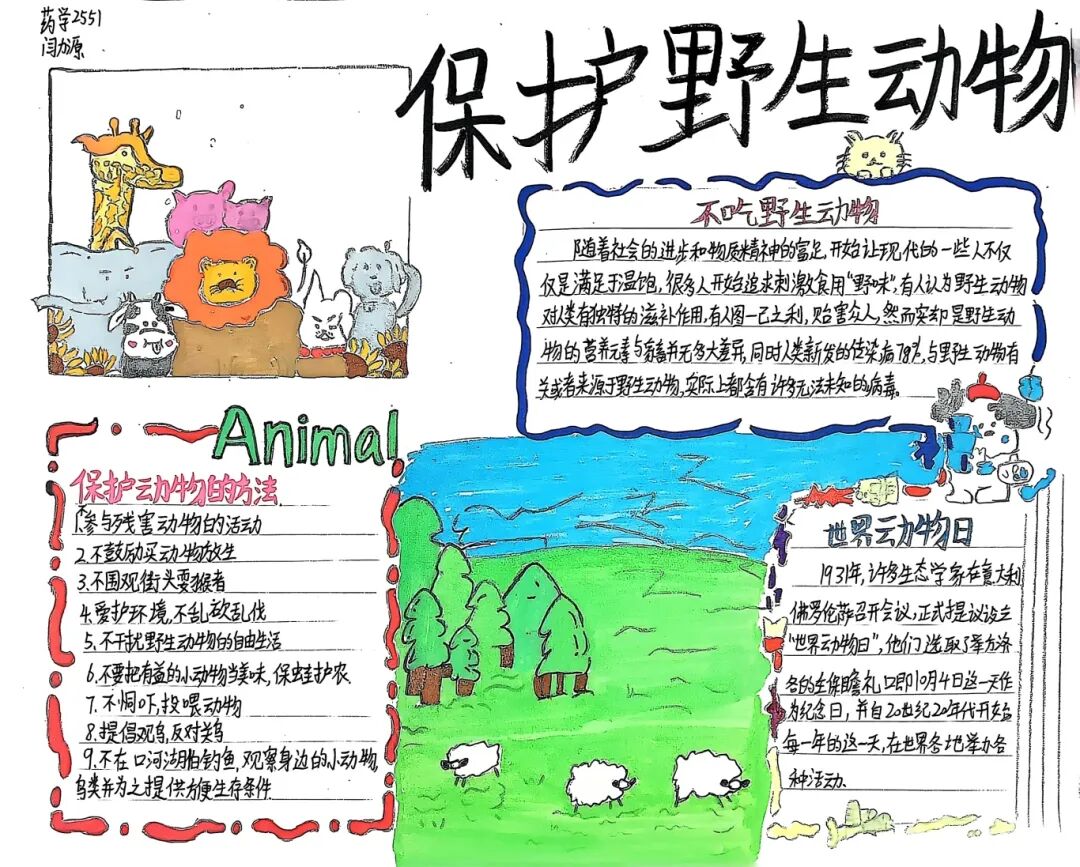 药学2551
闫力源
保护野生动物
不吃野生动物
随着社会的进步和物质精神的富足,开始让现代的一些人不仅
仅是满足于温饱,很多人开始追求刺激食用"野味",有人认为野生动物
对人类有独特的滋补作用,有人图一己之利,贻害众人,然而实却是野生动
物的营养元素与畜并无多大差异,同时人类新发的传染病78%与野生动物有
关或者来源于野生动物,实际上都含有许多无法未知的病毒。
Animal
保护动物的方法
1.参与残害动物的活动
2.不鼓励买动物放生
3.不围观街头耍猴者
4.爱护环境,不乱砍乱伐
5.不干扰野生动物的自由生活
6.不要把有益的小动物当美味,保蛙护农
7.不恫吓,投喂动物
8.提倡观鸟,反对关鸟
9.不在 口河湖泊钓鱼,观察身边的小动物,
鸟类并为之提供方便生存条件.
世界动物日
1931年,许多生态学家在意大利
佛罗伦萨召开会议,正式提议设立
"世界动物日",他们选取了圣方济
各的主保瞻礼 口即10月4日这一天作
为纪念日,并自20世纪20年代开始
每一年的这一天,在世界各地举办各
种活动.